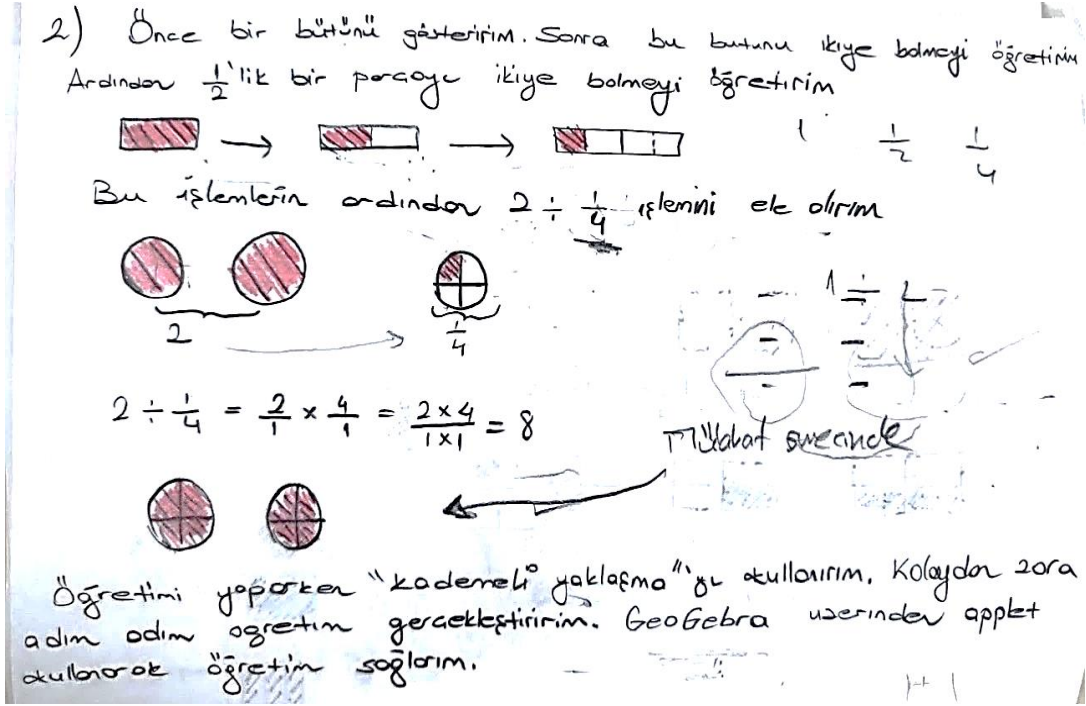 2) Önce bir bütünü gösteririm. Sonra bu butunu ikiye bolmeyi öğretirim
Ardından 1/2'lik bir parçayı ikiye bolmeyi öğretirim
1 1/2 1/4
Bu işlemlerin ardından 2 ÷ 1/4 işlemini ele alırım
2 1/4
1 ÷
2 ÷ 1/4 = 2/1 × 4/1 = 2×4/1×1 = 8
Mülakat sürecinde
Öğretimi yaparken "kademeli yaklaşma"yı kullanırım. Kolaydan zora
adım adım ogretim gerçekleştiririm. GeoGebra uzerinden applet
kullanarak öğretim sağlarım.